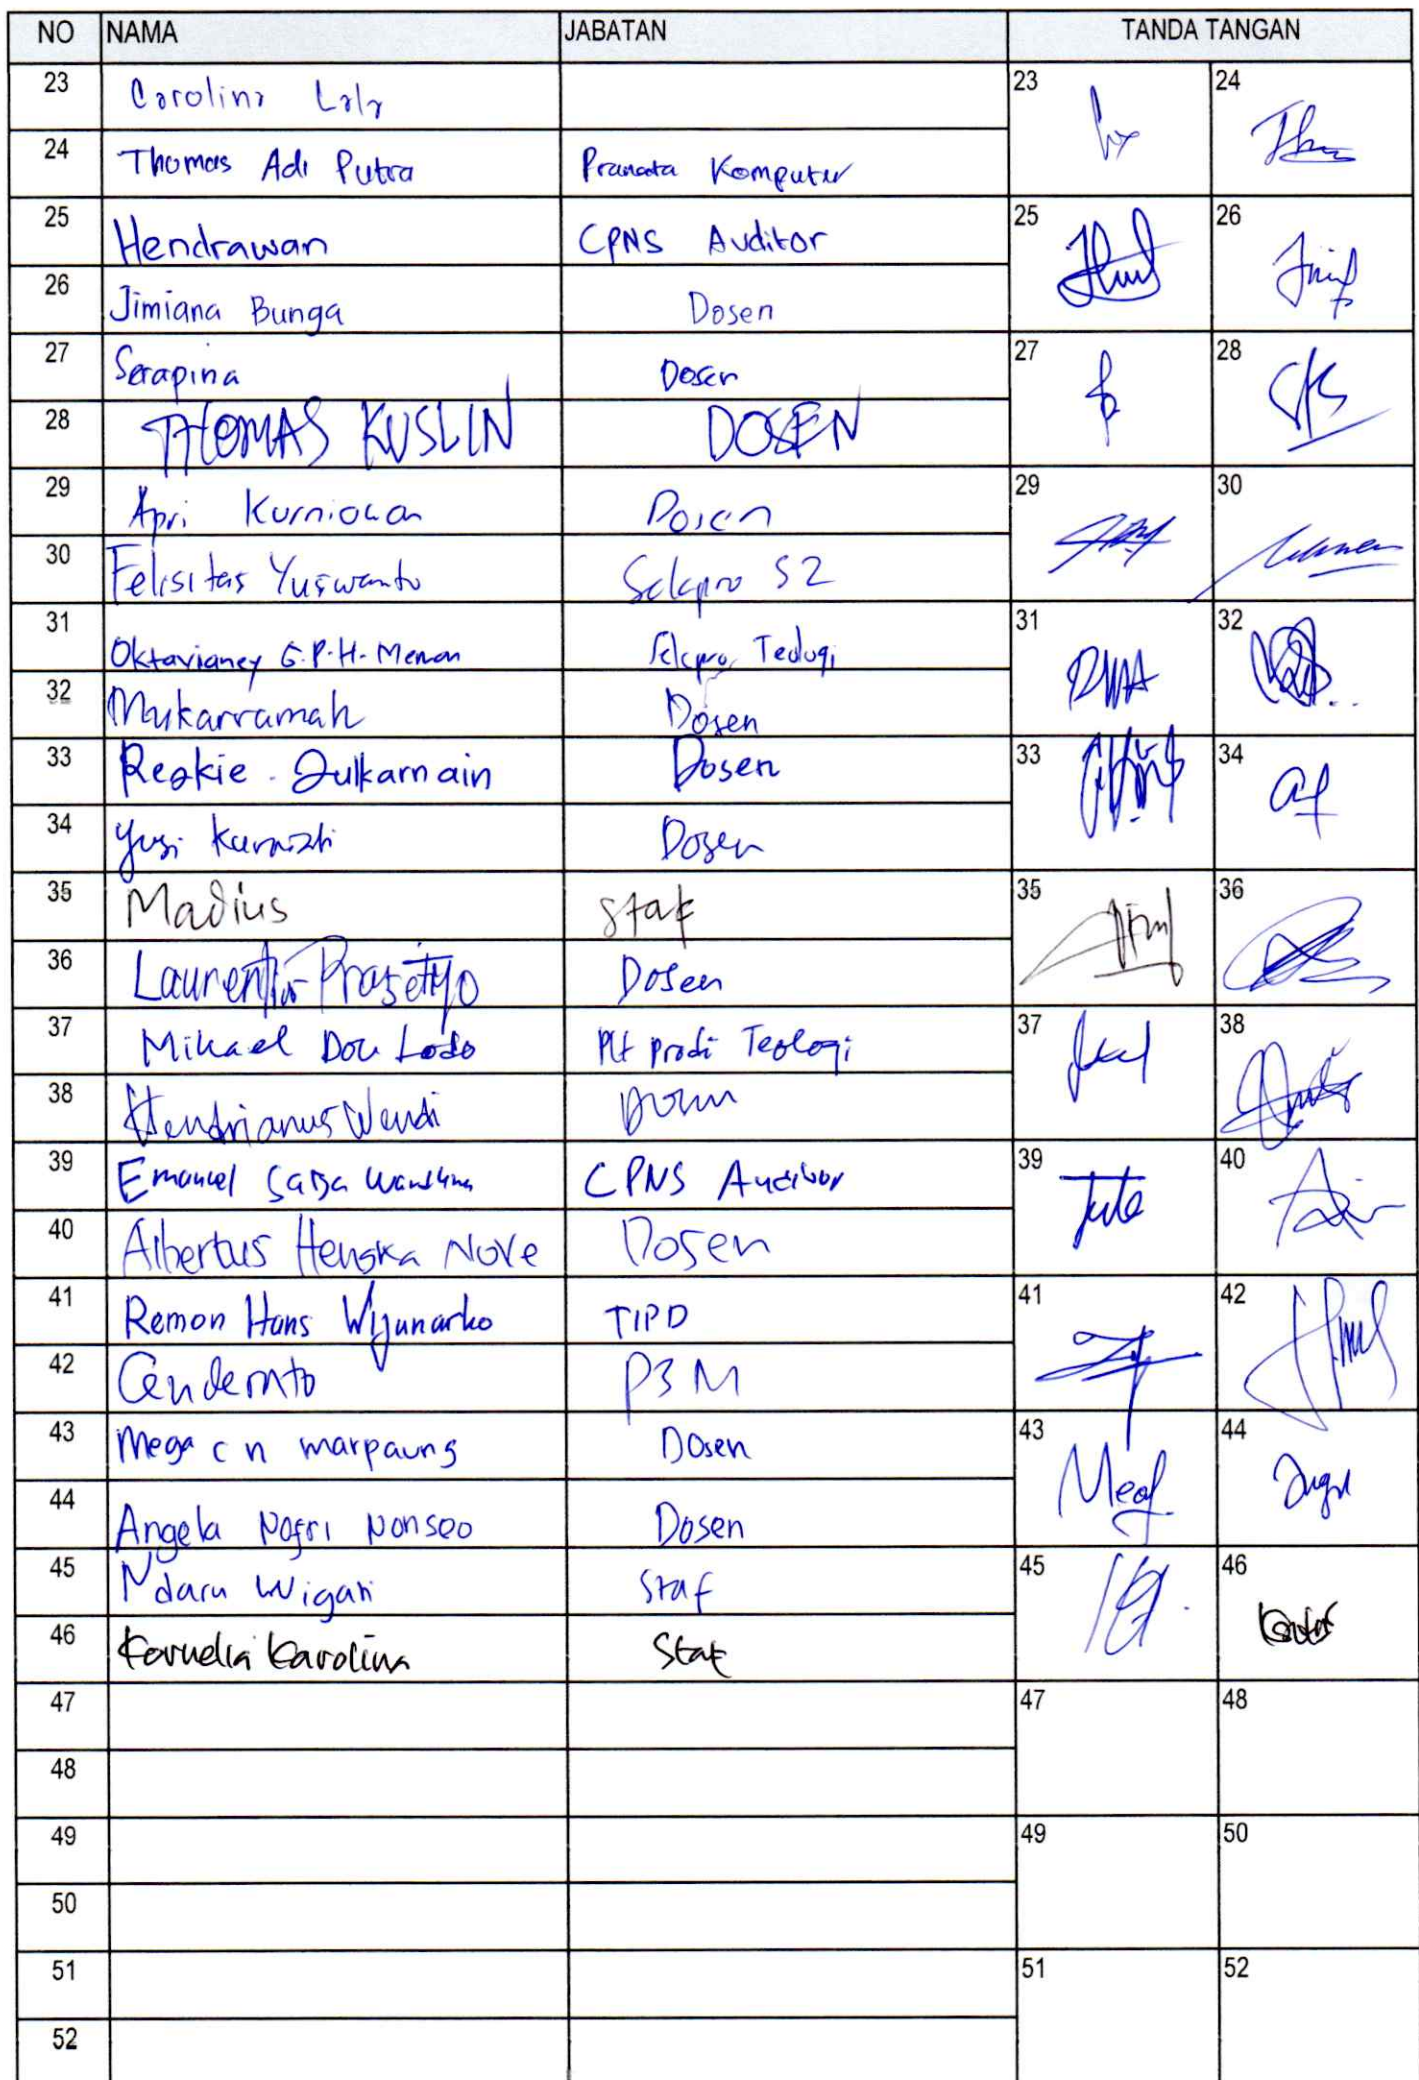 NO NAMA JABATAN TANDA TANGAN
23 Carolina Lala 23 24
24 Thomas Adi Putra Pranata Komputer
25 Hendrawan CPNS Auditor 25 26
26 Jimiana Bunga Dosen
27 Serapina Dosen 27 28
28 THOMAS KUSLIN DOSEN
29 Apri Kurniawan Dosen 29 30
30 Felisitas Yuswanto Sekpro S2
31 Oktavianey G.P.H. Meman Sekpro Teologi 31 32
32 Mukarramah Dosen
33 Rezkie Zulkarnain Dosen 33 34
34 Yusi Kurniati Dosen
35 Madius Staf 35 36
36 Laurentius Prasetyo Dosen
37 Mikael Dou Lodo Plt prodi Teologi 37 38
38 Hendrianus Wendi Dosen
39 Emanuel CPNS Auditor 39 40
40 Albertus Henoka Nove Dosen
41 Remon Hans Wijunarko TIPD 41 42
42 Cenderato P3M
43 Mega c n marpaung Dosen 43 44
44 Angela Nofri Nonseo Dosen
45 Ndaru Wigati Staf 45 46
46 Kornelia Karolina Staf
47 47 48
48
49 49 50
50
51 51 52
52